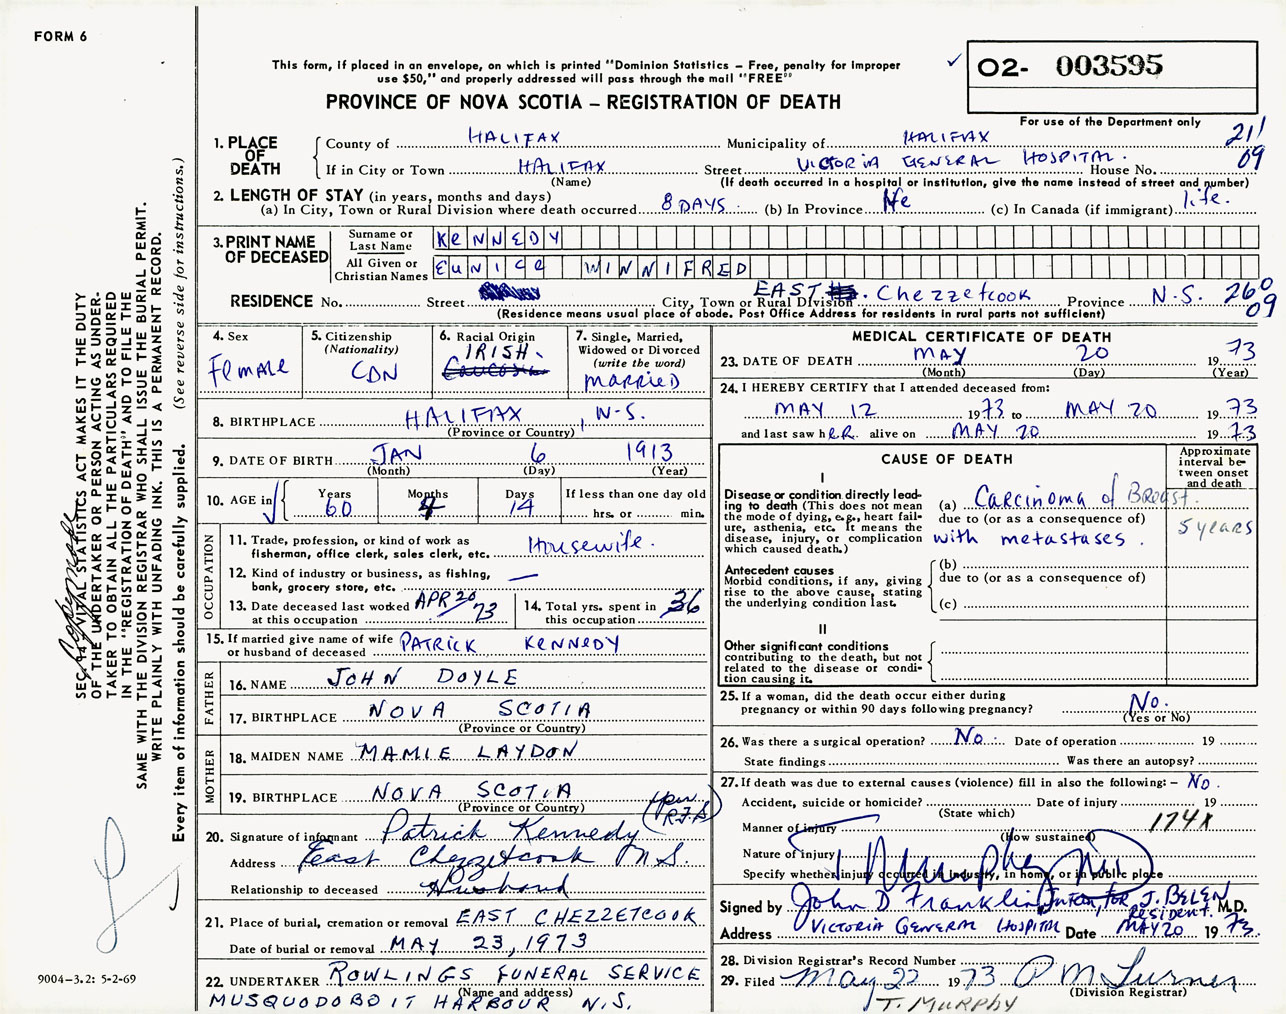 FORM 6
This form, if placed in an envelope, on which is printed "Dominion Statistics – Free, penalty for improper
use $50," and properly addressed will pass through the mail "FREE"
PROVINCE OF NOVA SCOTIA – REGISTRATION OF DEATH
02- 003595
For use of the Department only
211
09
1. PLACE OF DEATH
County of HALIFAX Municipality of HALIFAX
If in City or Town HALIFAX Street VICTORIA GENERAL HOSPITAL. House No.
(Name) (If death occurred in a hospital or institution, give the name instead of street and number)
2. LENGTH OF STAY (in years, months and days)
(a) In City, Town or Rural Division where death occurred 8 DAYS (b) In Province life (c) In Canada (if immigrant) life.
3. PRINT NAME OF DECEASED
Surname or Last Name KENNEDY
All Given or Christian Names EUNICE WINNIFRED
RESIDENCE No. Street City, Town or Rural Division EAST Chezzetcook Province N.S. 260
09
(Residence means usual place of abode. Post Office Address for residents in rural parts not sufficient)
4. Sex Female
5. Citizenship (Nationality) CDN
6. Racial Origin IRISH.
7. Single, Married, Widowed or Divorced (write the word) MARRIED
8. BIRTHPLACE HALIFAX, N-S.
(Province or Country)
9. DATE OF BIRTH JAN 6 1913
(Month) (Day) (Year)
10. AGE in Years 60 Months 4 Days 14 If less than one day old hrs. or min.
OCCUPATION
11. Trade, profession, or kind of work as
fisherman, office clerk, sales clerk, etc. Housewife.
12. Kind of industry or business, as fishing,
bank, grocery store, etc. —
13. Date deceased last worked at this occupation APR 20/73
14. Total yrs. spent in this occupation 36
15. If married give name of wife
or husband of deceased PATRICK KENNEDY
FATHER
16. NAME JOHN DOYLE
17. BIRTHPLACE NOVA SCOTIA
(Province or Country)
MOTHER
18. MAIDEN NAME MAMIE LAYDON
19. BIRTHPLACE NOVA SCOTIA
(Province or Country)
(per R.F.S)
20. Signature of informant Patrick Kennedy
Address East Chezzetcook N.S.
Relationship to deceased Husband
21. Place of burial, cremation or removal EAST CHEZZETCOOK
Date of burial or removal MAY 23, 1973
22. UNDERTAKER ROWLINGS FUNERAL SERVICE
(Name and address)
MUSQUODOBOIT HARBOUR N.S.
MEDICAL CERTIFICATE OF DEATH
23. DATE OF DEATH MAY 20 1973
(Month) (Day) (Year)
24. I HEREBY CERTIFY that I attended deceased from:
MAY 12 1973 to MAY 20 1973
and last saw hER alive on MAY 20 1973
CAUSE OF DEATH
Approximate interval between onset and death
I
Disease or condition directly leading to death (This does not
mean the mode of dying, e.g., heart failure, asthenia, etc. It means the
disease, injury, or complication which caused death.)
(a) Carcinoma of Breast.
due to (or as a consequence of)
with metastases.
5 years
Antecedent causes
Morbid conditions, if any, giving
rise to the above cause, stating
the underlying condition last.
(b)
due to (or as a consequence of)
(c)
II
Other significant conditions
contributing to the death, but not
related to the disease or condition causing it.
25. If a woman, did the death occur either during
pregnancy or within 90 days following pregnancy? No.
(Yes or No)
26. Was there a surgical operation? No. Date of operation 19
State findings Was there an autopsy?
27. If death was due to external causes (violence) fill in also the following:– No.
Accident, suicide or homicide? Date of injury 19
(State which)
Manner of injury 174X
(How sustained)
Nature of injury
Specify whether injury occurred in industry, in home, or in public place
Signed by John D Franklin Intern, for J. BELEN M.D.
Resident.
Address VICTORIA GENERAL HOSPITAL Date MAY 20 1973.
28. Division Registrar's Record Number
29. Filed May 22 1973 P M Turner
(Division Registrar)
T. MURPHY
SEC. 14 VITAL STATISTICS ACT MAKES IT THE DUTY
OF THE UNDERTAKER OR PERSON ACTING AS UNDER-
TAKER TO OBTAIN ALL THE PARTICULARS REQUIRED
IN THE "REGISTRATION OF DEATH" AND TO FILE THE
SAME WITH THE DIVISION REGISTRAR WHO SHALL ISSUE THE BURIAL PERMIT.
WRITE PLAINLY WITH UNFADING INK. THIS IS A PERMANENT RECORD.
Every item of information should be carefully supplied. (See reverse side for instructions.)
9004-3.2: 5-2-69